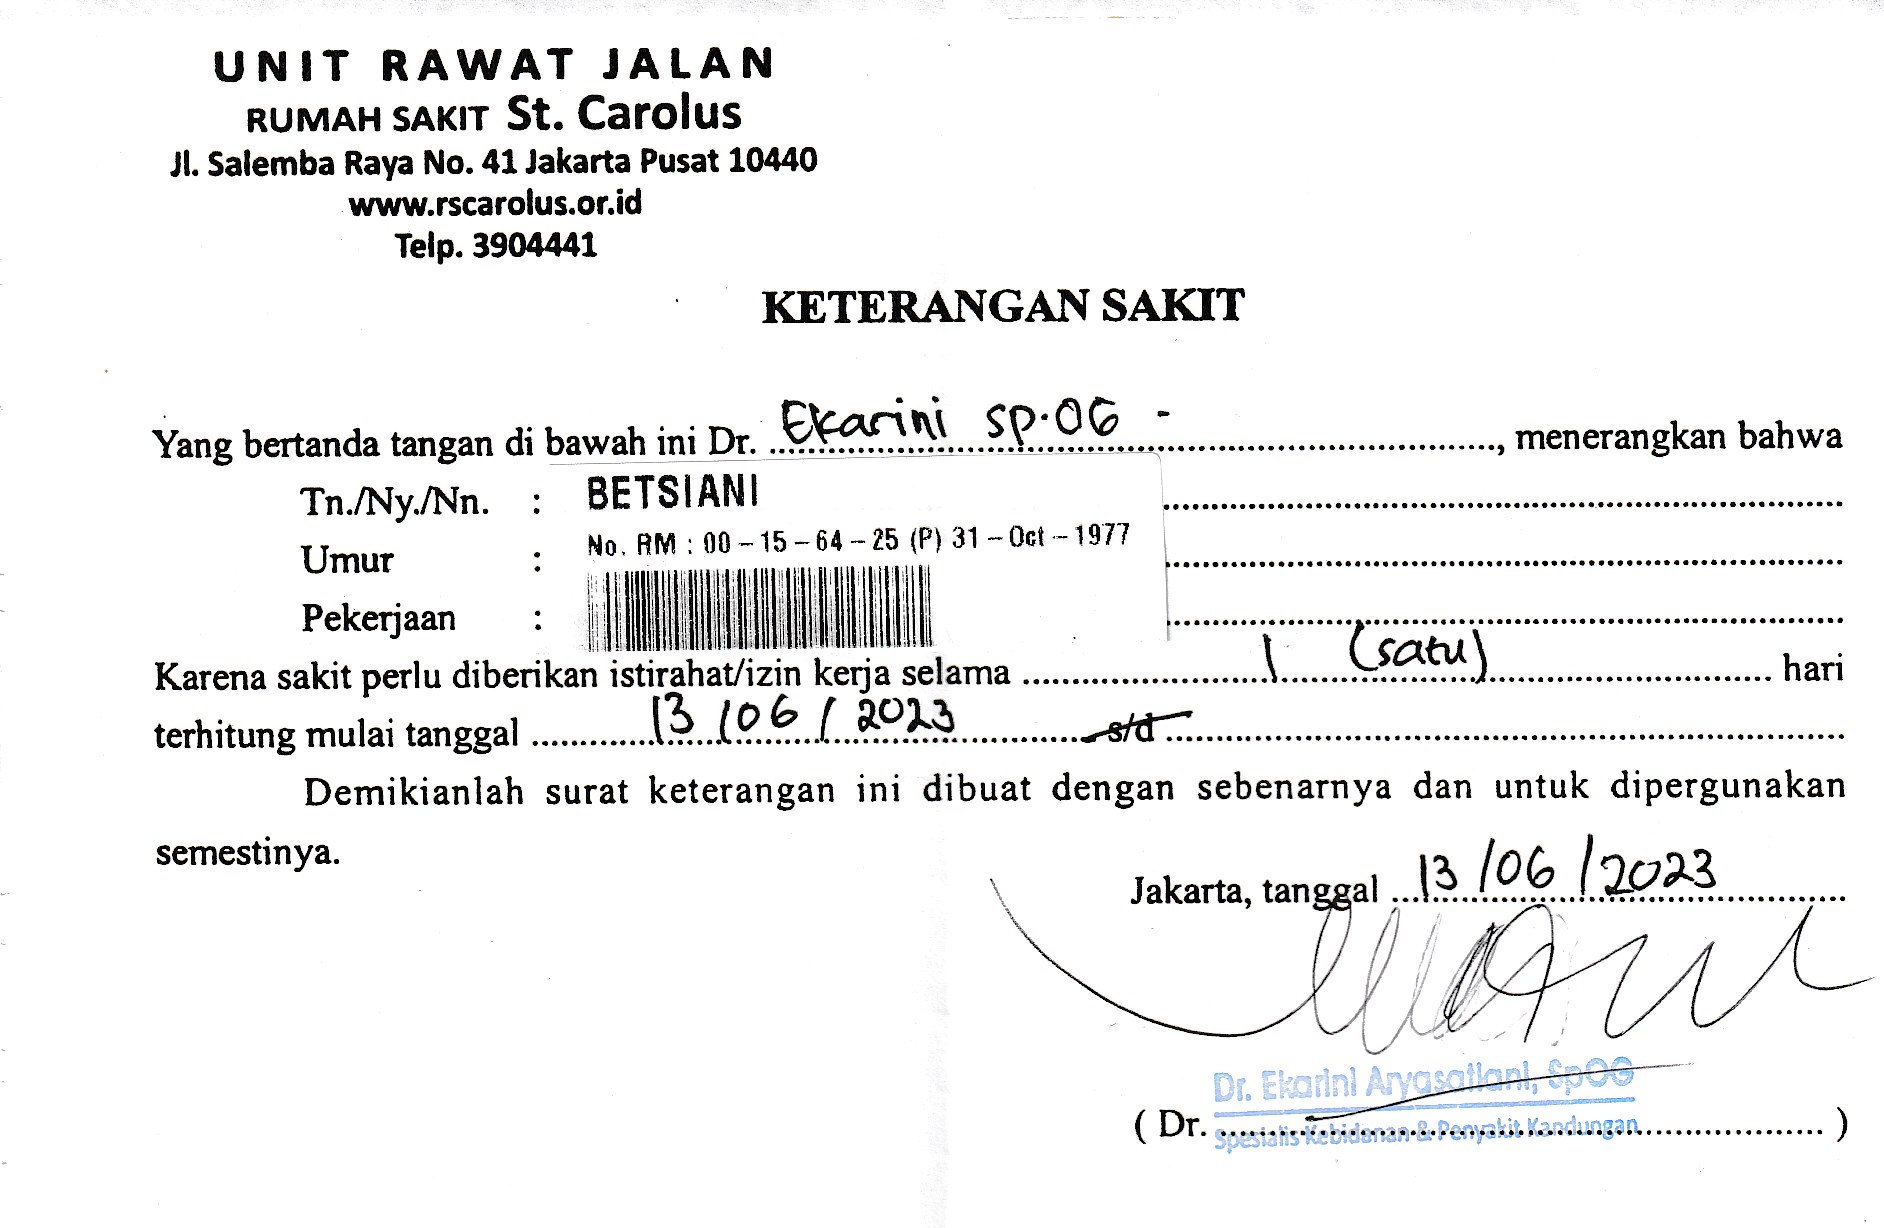 UNIT RAWAT JALAN
RUMAH SAKIT St. Carolus
Jl. Salemba Raya No. 41 Jakarta Pusat 10440
www.rscarolus.or.id
Telp. 3904441
KETERANGAN SAKIT
Yang bertanda tangan di bawah ini Dr. Ekarini Sp.OG - , menerangkan bahwa
Tn./Ny./Nn. : BETSIANI
No. RM : 00-15-64-25 (P) 31-Oct-1977
Umur :
Pekerjaan :
Karena sakit perlu diberikan istirahat/izin kerja selama 1 (satu) hari
terhitung mulai tanggal 13/06/2023 s/d
Demikianlah surat keterangan ini dibuat dengan sebenarnya dan untuk dipergunakan
semestinya.
Jakarta, tanggal 13/06/2023
Dr. Ekarini Aryasatiani, SpOG
( Dr. Spesialis Kebidanan & Penyakit Kandungan )